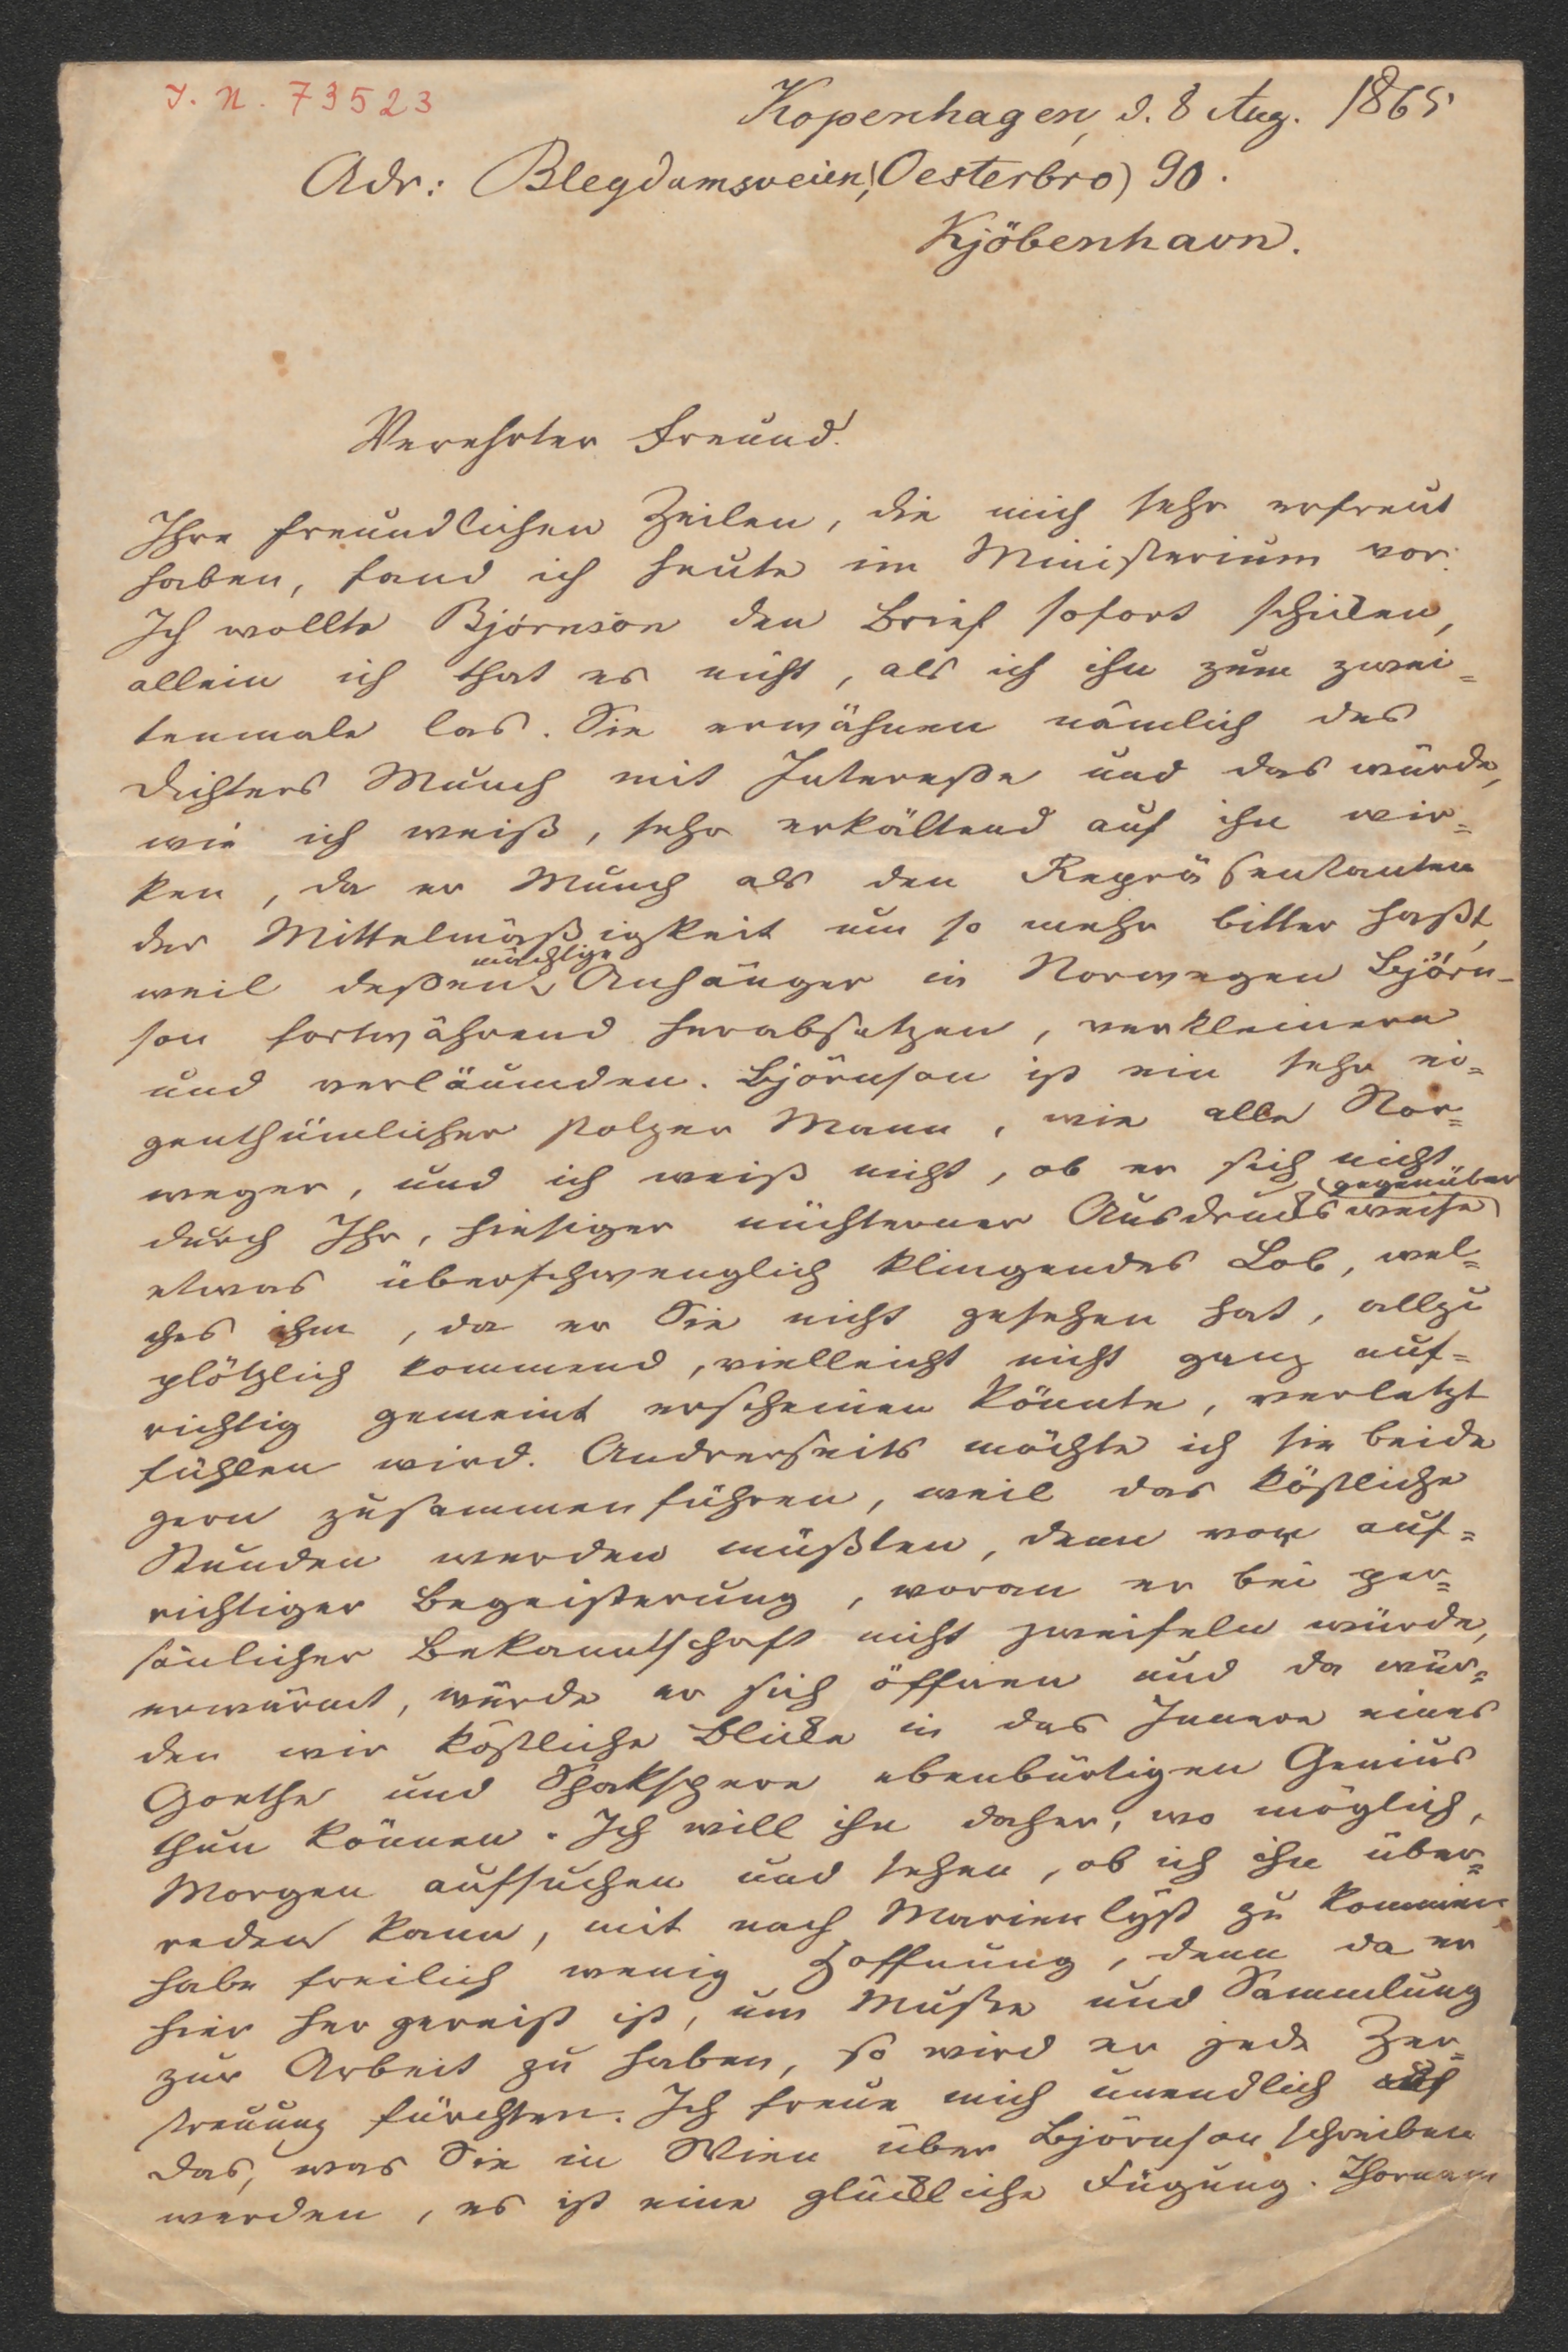 J. N. 73523
Kopenhagen, d. 8 Aug. 1865
Adr: Blegdamsveien, (Oesterbro) 90.
Kjöbenhavn.
Verehrter Freund!
Ihre freundlichen Zeilen, die mich sehr erfreut
haben, fand ich heute im Ministerium vor.
Ich wollte Björnson den Brief sofort schicken,
allein ich that es nicht, als ich ihn zum zwei=
tenmale las. Sie erwähnen nämlich des
Dichters Munch mit Intereße und das würde,
wie ich weiß, sehr erkältend auf ihn wir=
ken, da er Munch als den Repräsentanten
der Mittelmäßigkeit um so mehr bitter haßt,
weil deßen mächtige Anhänger in Norwegen Björn-
son fortwährend herabsetzen, verkleinern
und verläumden. Björnson ist ein sehr ei=
genthümlicher stolzer Mann, wie alle Nor=
weger, und ich weiß nicht, ob er sich nicht
durch Ihr, hiesiger nüchterner Ausdrucksweise gegenüber
etwas überschwenglich klingendes Lob, wel=
ches ihm, da er Sie nicht gesehen hat, allzu
plötzlich kommend, vielleicht nicht ganz auf=
richtig gemeint erscheinen könnte, verletzt
fühlen wird. Andrerseits möchte ich sie beide
gern zusammenführen, weil das köstliche
Stunden werden müßten, denn von auf=
richtiger Begeisterung, woran er bei per=
sönlicher Bekanntschaft nicht zweifeln würde,
erwärmt, würde er sich öffnen und da wür=
den wir köstliche Blicke in das Innere eines
Goethe und Shakspere ebenbürtigen Genius
thun können. Ich will ihn daher, wo möglich,
Morgen aufsuchen und sehen, ob ich ihn über=
reden kann, mit nach Marienlyst zu kommen,
habe freilich wenig Hoffnung, denn da er
hier her gereist ist, um Muße und Sammlung
zur Arbeit zu haben, so wird er jede Zer=
streuung fürchten. Ich freue mich unendlich auf
das, was Sie in Wien über Björnson schreiben
werden, es ist eine glückliche Fügung.